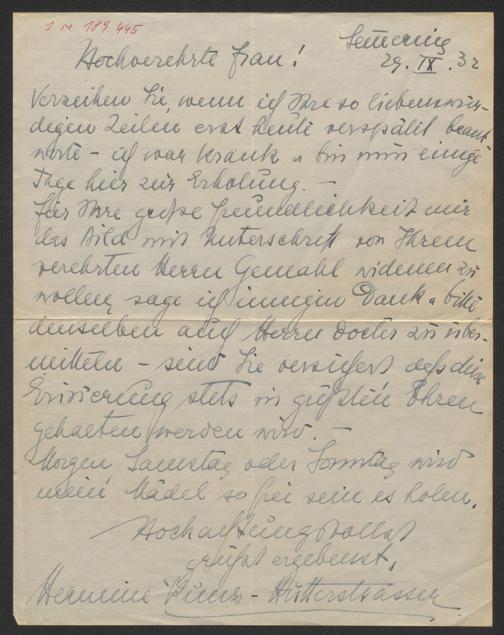 I N 189.445
Semmering
29. IX. 32
Hochverehrte Frau!
Verzeihen Sie, wenn ich Ihre so liebenswür-
digen Zeilen erst heute verspätet beant-
worte – ich war krank u bin nun einige
Tage hier zur Erholung. –
Für Ihre große Freundlichkeit mir
das Bild mit Unterschrift von Ihrem
verehrten Herrn Gemahl widmen zu
wollen, sage ich innigen Dank u bitte
denselben auch Herrn Doctor zu über-
mitteln – seien Sie versichert daß diese
Erinnerung stets in größten Ehren
gehalten werden wird. –
Morgen Samstag oder Sonntag wird
mein Mädel so frei sein es holen.
Hochachtungsvollst
grüßt ergebenst,
Hermine Kunz-Hutterstrasser